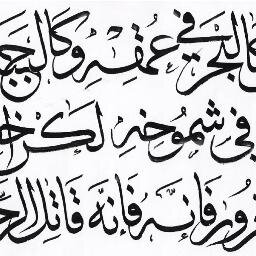 كالبحر في عمقه وكالجب
في شموخه لكن
رور فإنه فإنه قاتل الر